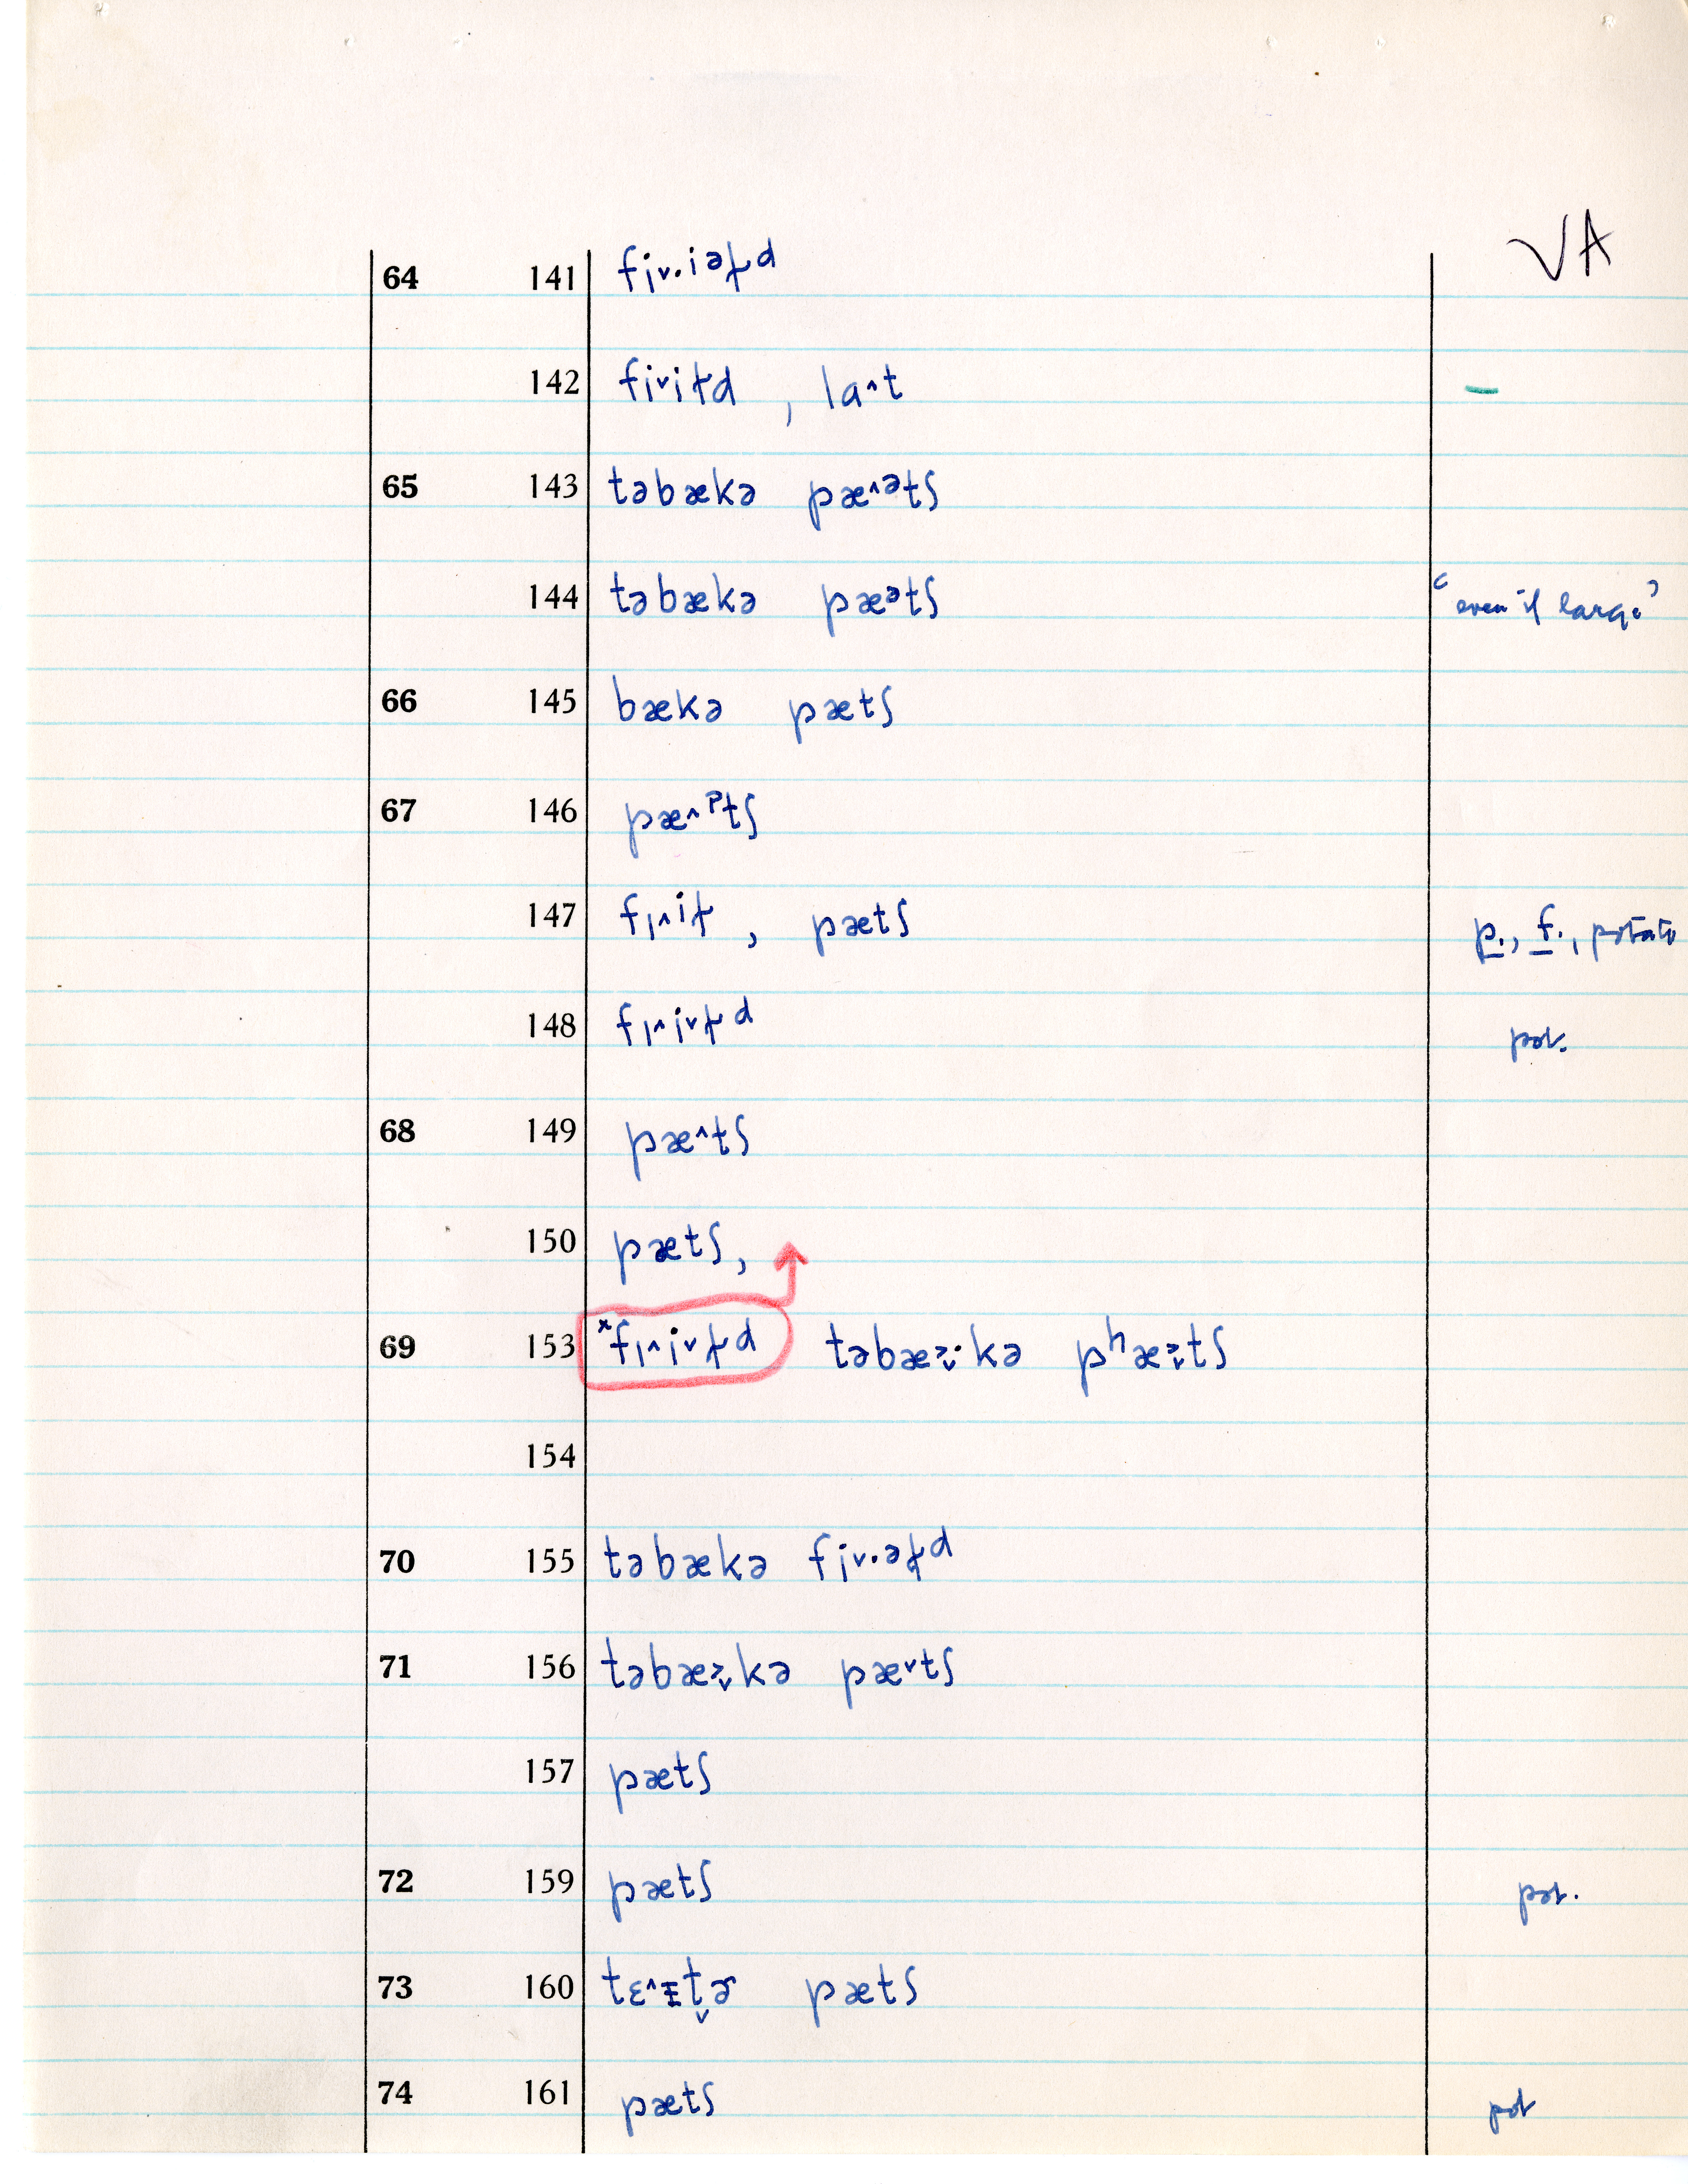 VA
64 141 fi˅·iəɫd
142 fi˅iɫd , la^t –
65 143 təbækə pæ^ᵊtʃ
144 təbækə pæᵊtʃ “even if large”
66 145 bækə pætʃ
67 146 pæ^ᵖtʃ
147 fɪ^iɫ , pætʃ p., f., potato
148 fɪ^i˅ɫd pot.
68 149 pæ^tʃ
150 pætʃ,
69 153 ˣfɪ^i˅ɫd təbæ˃˅·kə pʰæ˃˅tʃ
154
70 155 təbækə fi˅·əɫd
71 156 təbæ˃˅kə pæ˅tʃ
157 pætʃ
72 159 pætʃ pot.
73 160 tɛ^ɪt̬ɚ pætʃ
74 161 pætʃ pot